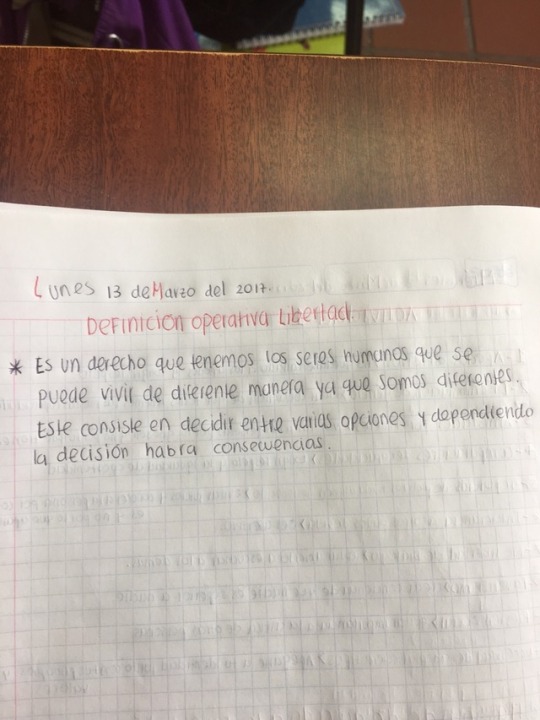 Lunes 13 de Marzo del 2017.
Definición operativa Libertad.
* Es un derecho que tenemos los seres humanos que se
puede vivir de diferente manera ya que somos diferentes.
Este consiste en decidir entre varias opciones y dependiendo
la decisión habra consecuencias.